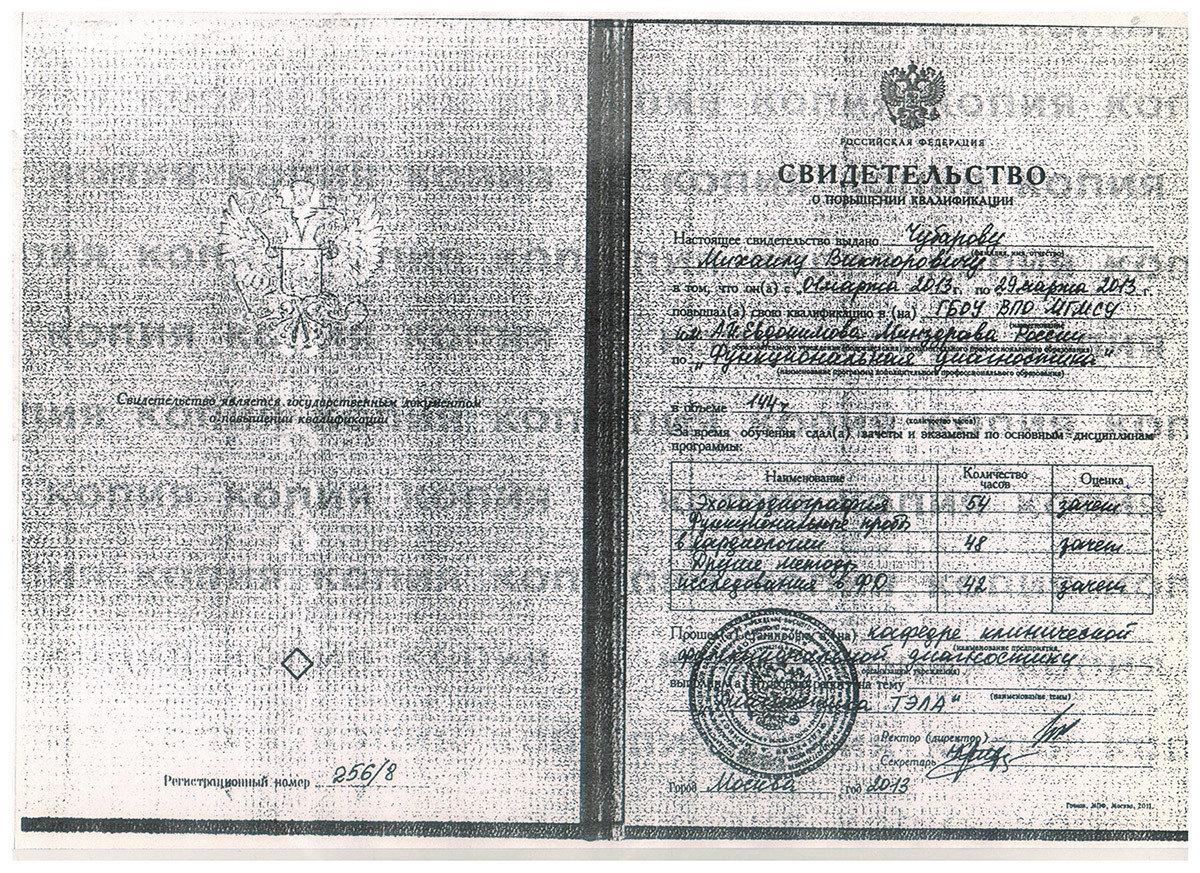 Свидетельство является государственным документом
о повышении квалификации
Регистрационный номер 256/8
РОССИЙСКАЯ ФЕДЕРАЦИЯ
СВИДЕТЕЛЬСТВО
О ПОВЫШЕНИИ КВАЛИФИКАЦИИ
Настоящее свидетельство выдано Чубарову
(фамилия, имя, отчество)
Михаилу Викторовичу
в том, что он(а) с „01 марта 2013г. по 29 марта 2013г.
повышал(а) свою квалификацию в (на) ГБОУ ВПО МГМСУ
(наименование)
им. А.И. Евдокимова Минздрава России
образовательного учреждения (подразделения) дополнительного профессионального образования)
по „Функциональная диагностика"
(наименование программы дополнительного профессионального образования)
в объеме 144ч
(количество часов)
За время обучения сдал(а) зачеты и экзамены по основным дисциплинам
программы:
Наименование Количество часов Оценка
Эхокардиография 54 зачет
Функциональные пробы
в кардиологии 48 зачет
Другие методы
исследования в ФД 42 зачет
Прошел(а) стажировку в (на) кафедре клинической
(наименование предприятия,
функциональной диагностики
организации, учреждения)
выполнил(а) итоговую работу на тему
(наименование темы)
„Диагностика ТЭЛА"
Ректор (директор)
Секретарь
Город Москва год 2013
Гознак, МПФ, Москва, 2011.